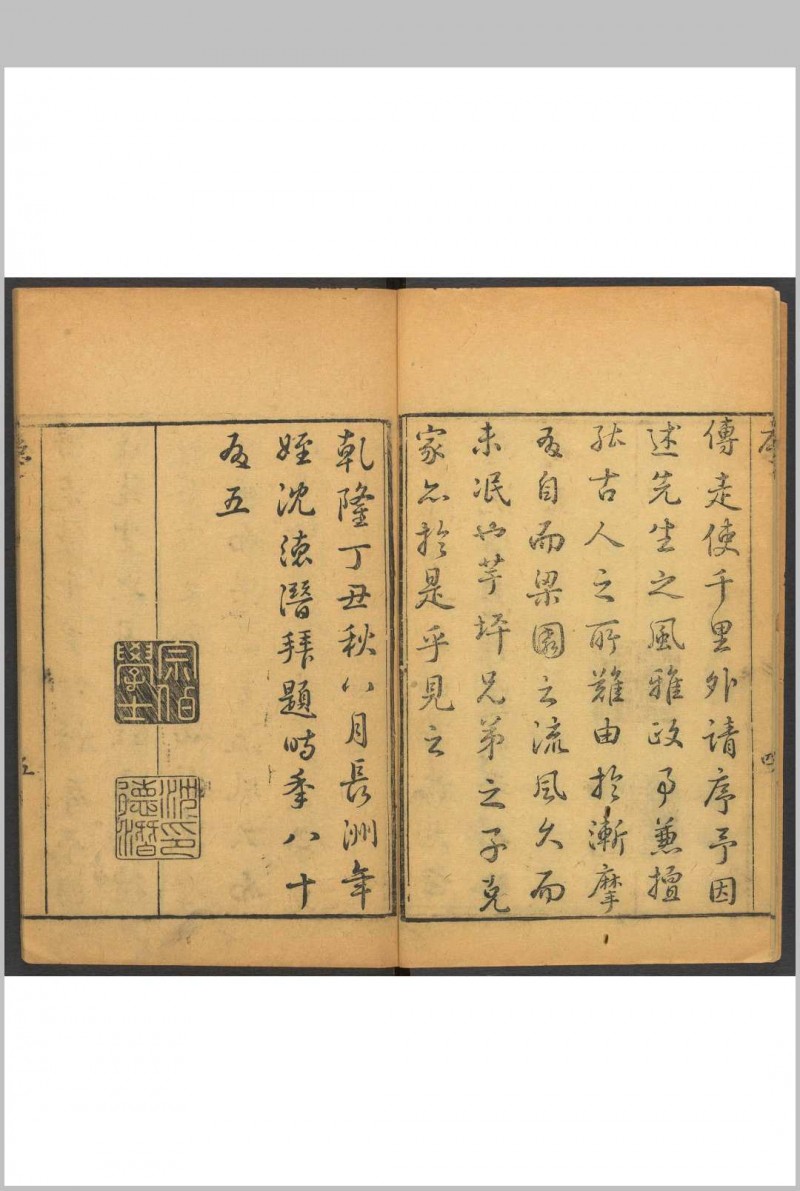 序
傳走使千里外請序予因
述先生之風雅政事兼擅
於古人之所難由於漸摩
有自而梁園之流風久而
未泯也芋坪兄弟之子克
家亦於是乎見之
四
乾隆丁丑秋八月長洲年
姪沈德潛拜題時年八十
有五
宗伯學士
沈印德潛
五